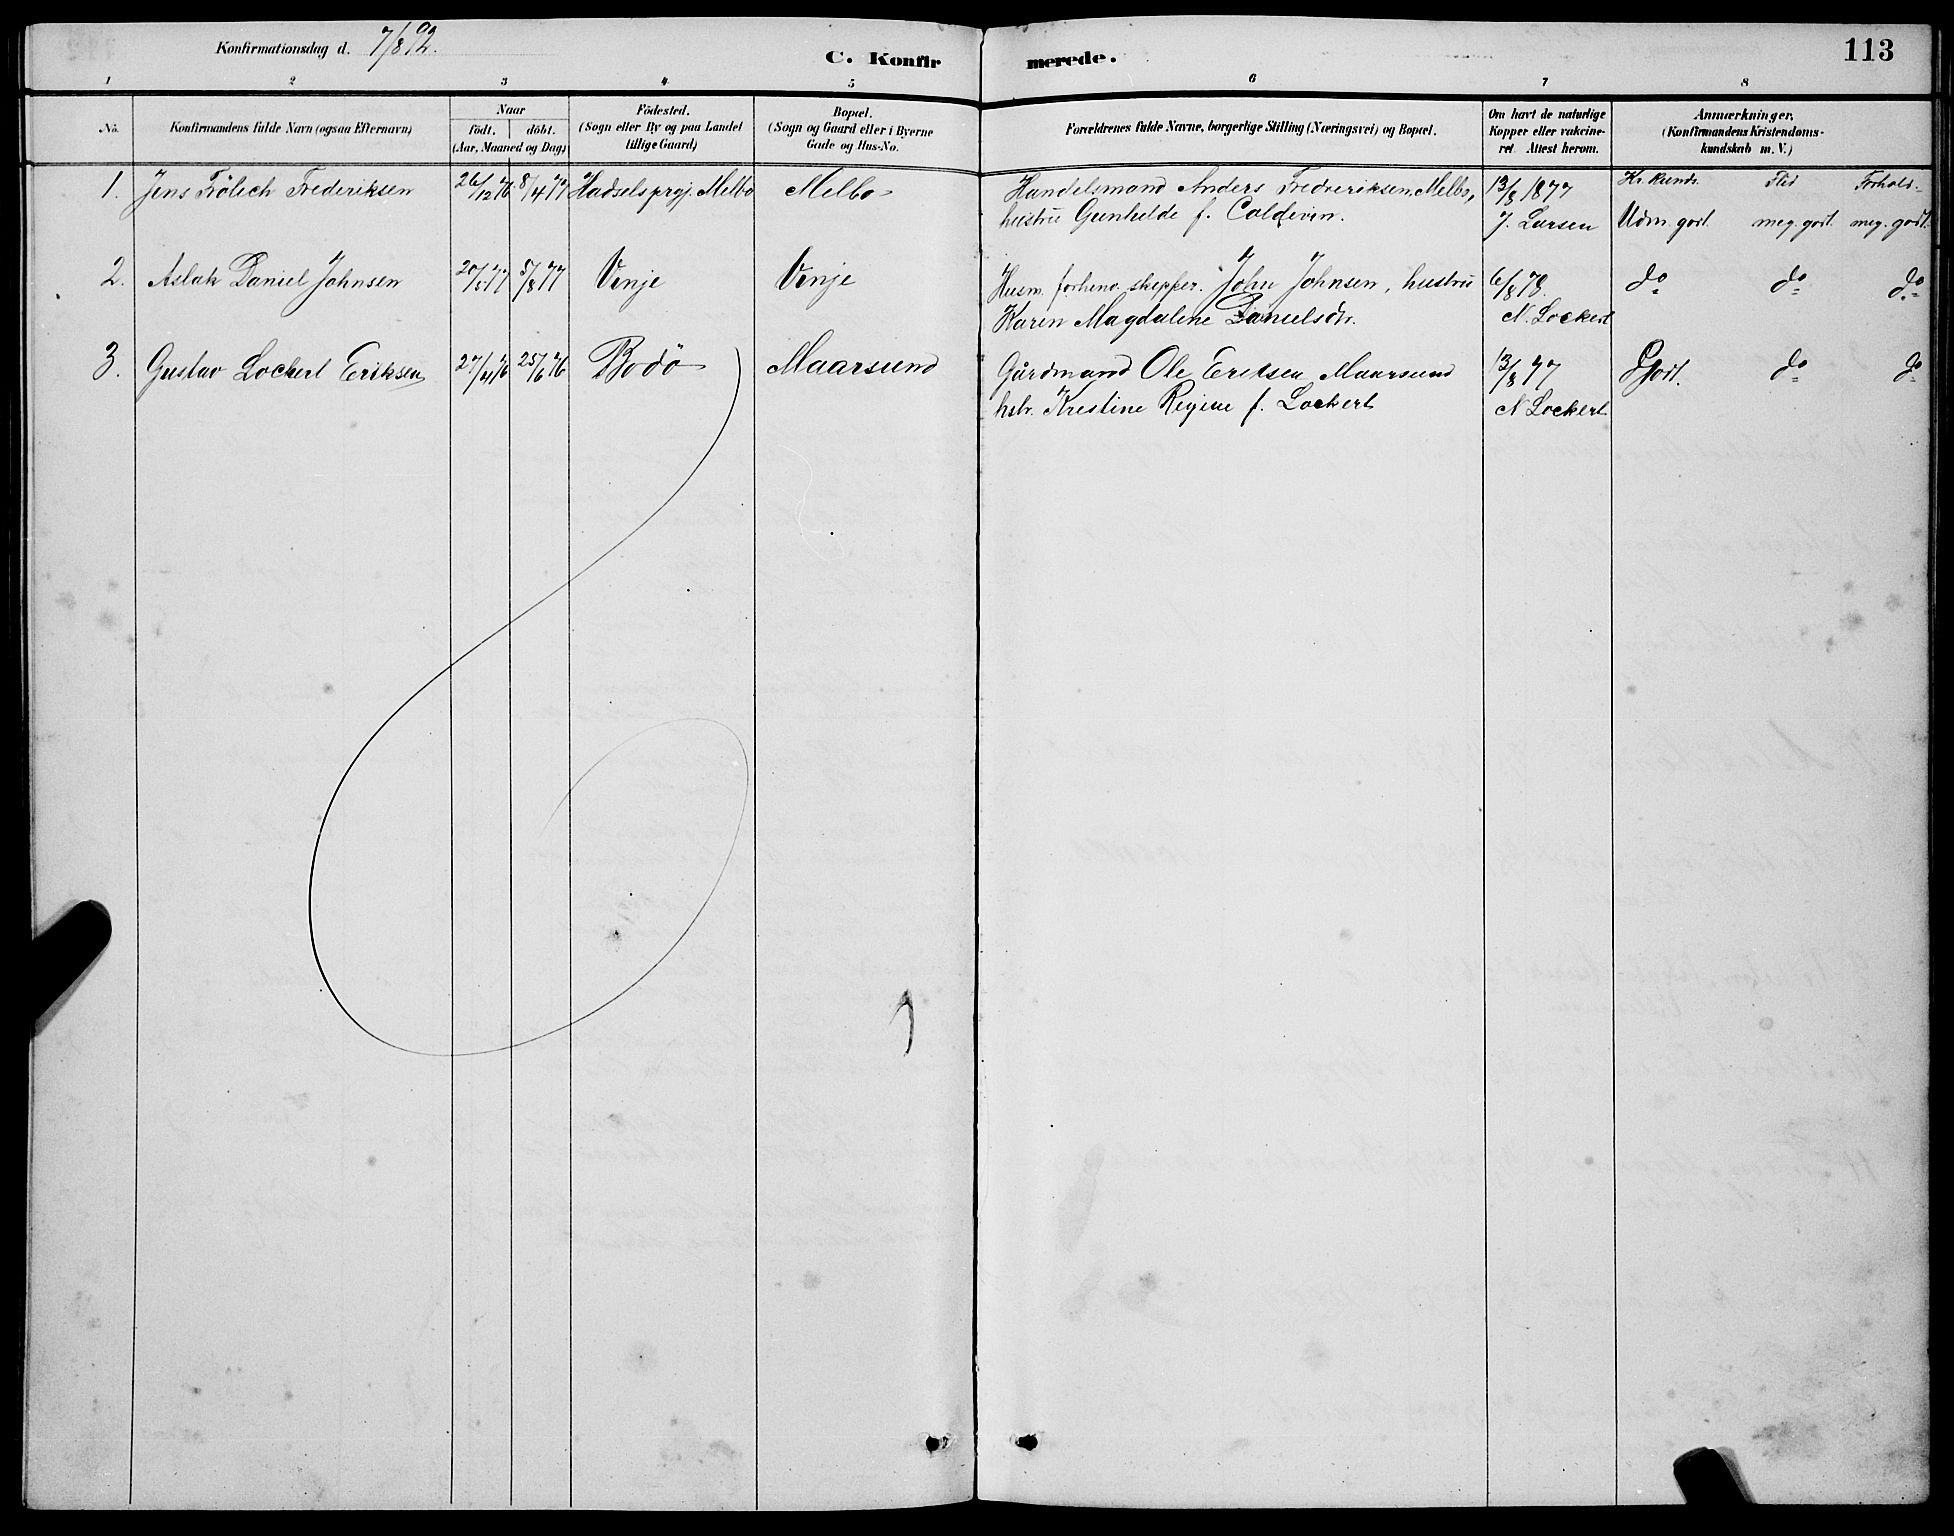 Konfirmationsdag d. 7/8 92.
C. Konfirmerede.
113
1 2 3 4 5 6 7 8
No.
Konfirmandens fulde Navn (ogsaa Efternavn)
Naar
født. døbt.
(Aar, Maaned og Dag)
Födested.
(Sogn eller By og paa Landet
tillige Gaard)
Bopæl.
(Sogn og Gaard eller i Byerne
Gade og Hus-No.
Forældrenes fulde Navne, borgerlige Stilling (Næringsvei) og Bopæl.
Om havt de naturlige
Kopper eller vakcine-
ret. Attest herom.
Anmærkninger,
(Konfirmandens Kristendoms-
kundskab m. V.)
1. Jens Frölich Frederiksen 26/12 76 8/4 77 Hadselsprgj. Melbo Melbo Handelsmand Anders Fredreriksen, Melbo, 13/8 1877 Kr. kunds. Flid Forhold.
hustru Gunhilde f. Coldevin. J. Larsen Udm. godt. meg. godt. meg. godt.
2. Aslak Daniel Johnsen 5/8 77 Vinje Vinje Husm. forhenv. skipper. John Johnsen, hustru 6/8 78. do do do
Karen Magdalene Danielsdtr. N. Lockert
3. Gustav Lockert Eriksen 27/4 76 25/6 76 Bodö Maarsund Gårdmand Ole Eriksen Maarsund 13/8 77 Godt. do do
hstr. Kristine Regine f. Lockert N Lockert